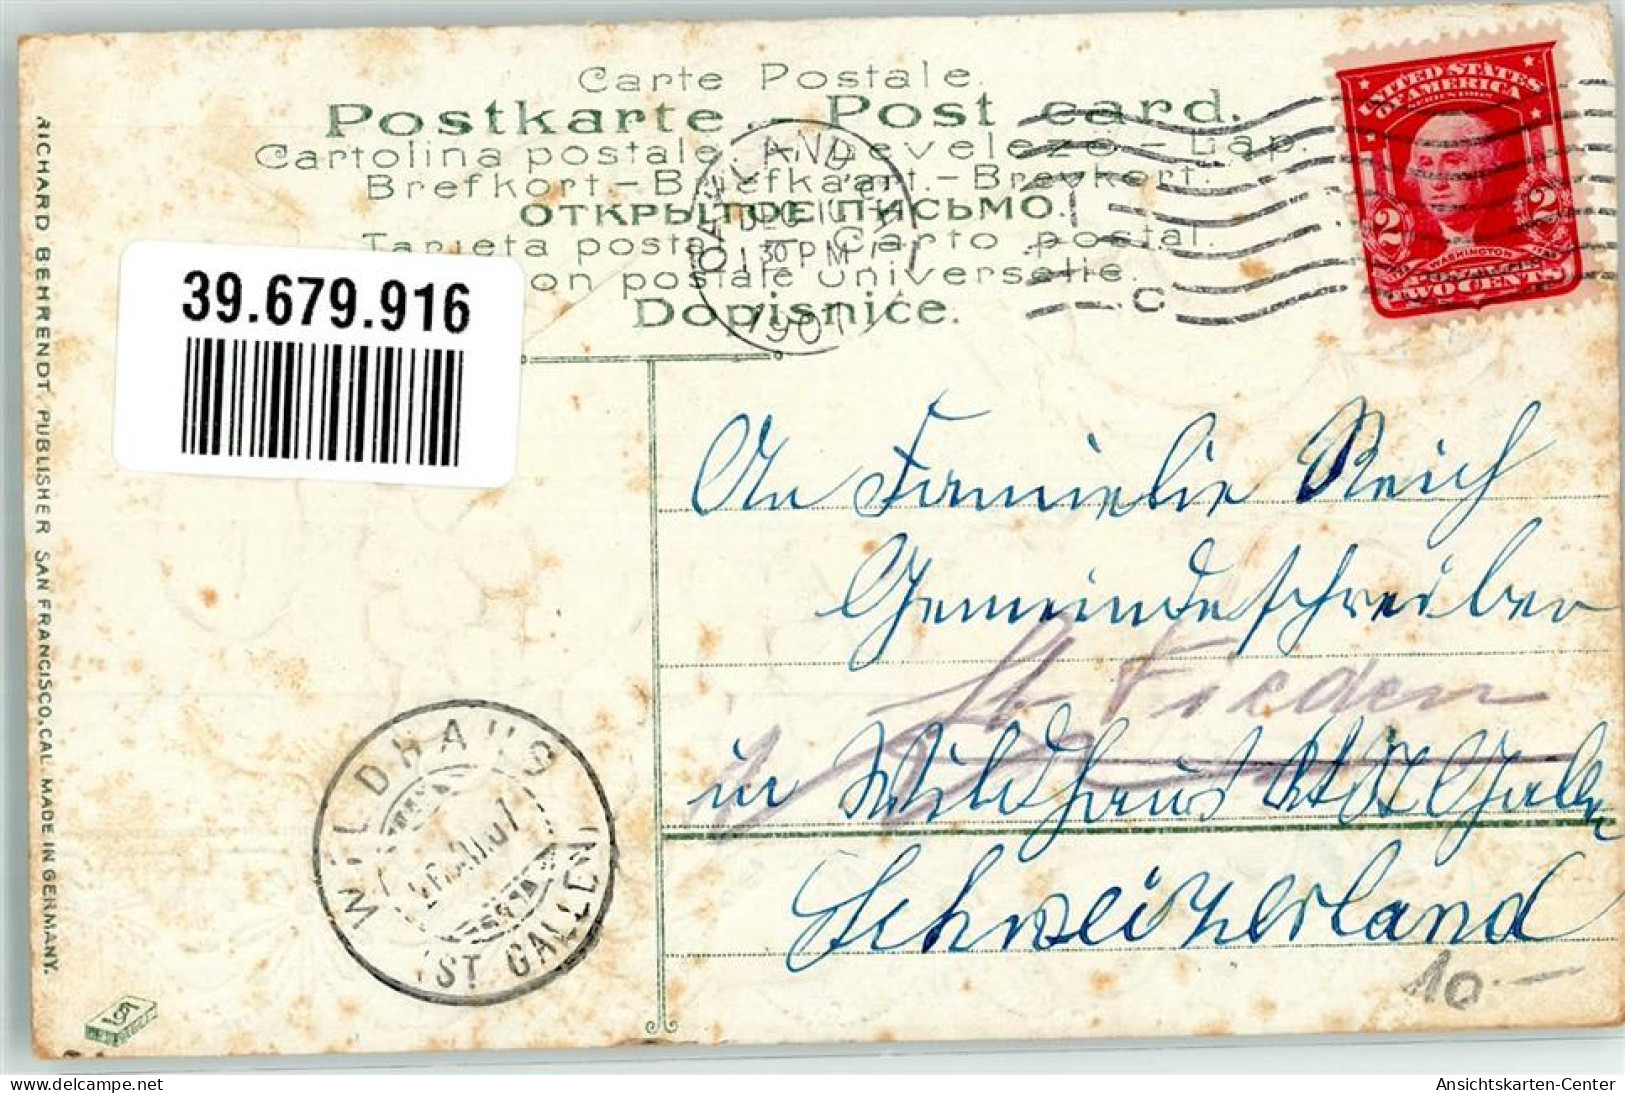 Carte Postale.
Postkarte - Post card.
Cartolina postale. - Levelező-Lap.
Brefkort. - Briefkaart. - Brevkort.
ОТКРЫТОЕ ПИСЬМО.
Tarjeta postal - Carto postal.
on postale universelle.
Dopisnice.
OAKLAND
DEC 10
1 30 PM
1907
C
UNITED STATES
OF AMERICA
SERIES 1902
2 2
WASHINGTON
TWO CENTS
39.679.916
RICHARD BEHRENDT, PUBLISHER SAN FRANCISCO, CAL. MADE IN GERMANY.
An Familie Reich
Gemeindeschreiber
St. Fieden
in Wildhaus Kt St Gallen
Schweizerland
10.—
WILDHAUS
26.XII.07
(ST. GALLEN)
hpm-5270084.
Ansichtskarten-Center